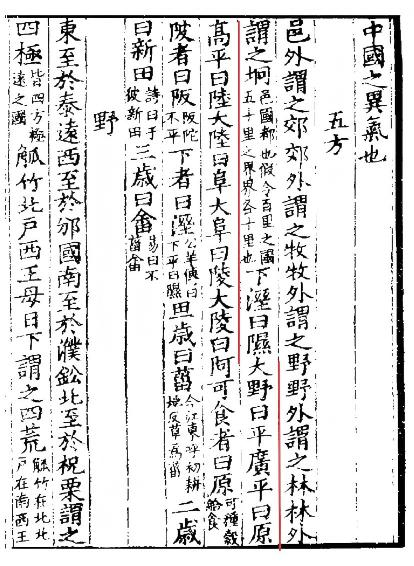 中國之異氣也
五方
邑外謂之郊郊外謂之牧牧外謂之野野外謂之林林外
謂之坰邑國都也假令百里之國五十里之界界各十里也下溼曰隰大野曰平廣平曰原
高平曰陸大陸曰阜大阜曰陵大陵曰阿可食者曰原可種穀給食
陂者曰阪阪陀不平下者曰溼公羊傳曰下平曰隰田一歲曰菑今江東呼初耕地反草為菑二歲
曰新田詩曰于彼新田三歲曰畬易曰不菑畬
野
東至於泰遠西至於邠國南至於濮鈆北至於祝栗謂之
四極皆四方極遠之國觚竹北戶西王母日下謂之四荒觚竹在北北戶在南西王